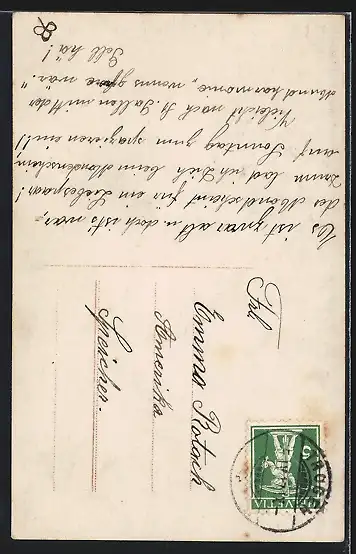 Es ist zwar alt u. doch ist's wahr,
der Mondschein für ein Liebespaar!
Drum lad ich Dich beim Mondenschein,
auf Sonntag zum spazieren ein!!
Vieleicht nach St. Gallen mit der
Mundharmonie, wenns schön wär."
Gell hä!
Frl
Emma Rotach
Amerika
Speicher.
5
HELVETIA